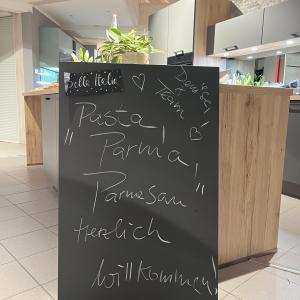 Bella Italia
Denise's
Team
Pasta,
"Parma,
Parmesan"
Herzlich
willkommen!